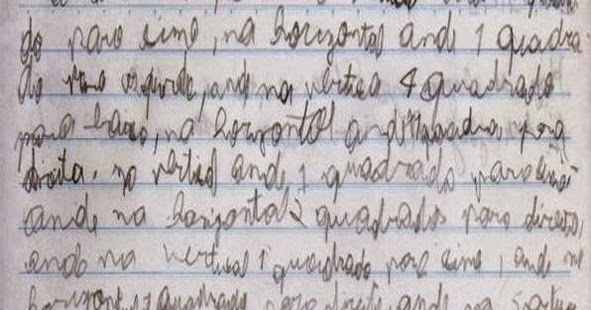 do para cima, na horizontal ande 1 quadra-
do para esquerda, ande na vertical 4 quadrado
para baixo, na horizontal ande 1 quadra para
direita. no vertical ande 1 quadrado para cima
ande na horizontal 2 quadrados para direita,
ande na vertical 1 quadrado para cima, ande na
horizontal quadrado para direita ande na vertical